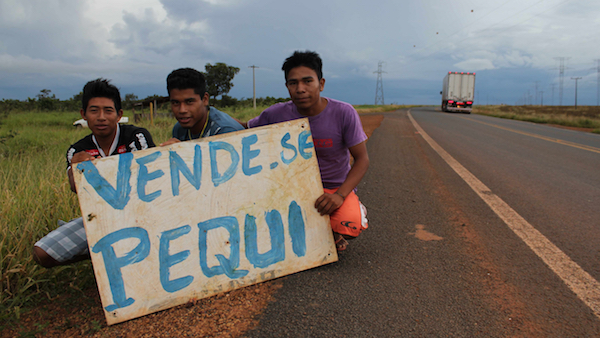 VENDE-SE
PEQUI